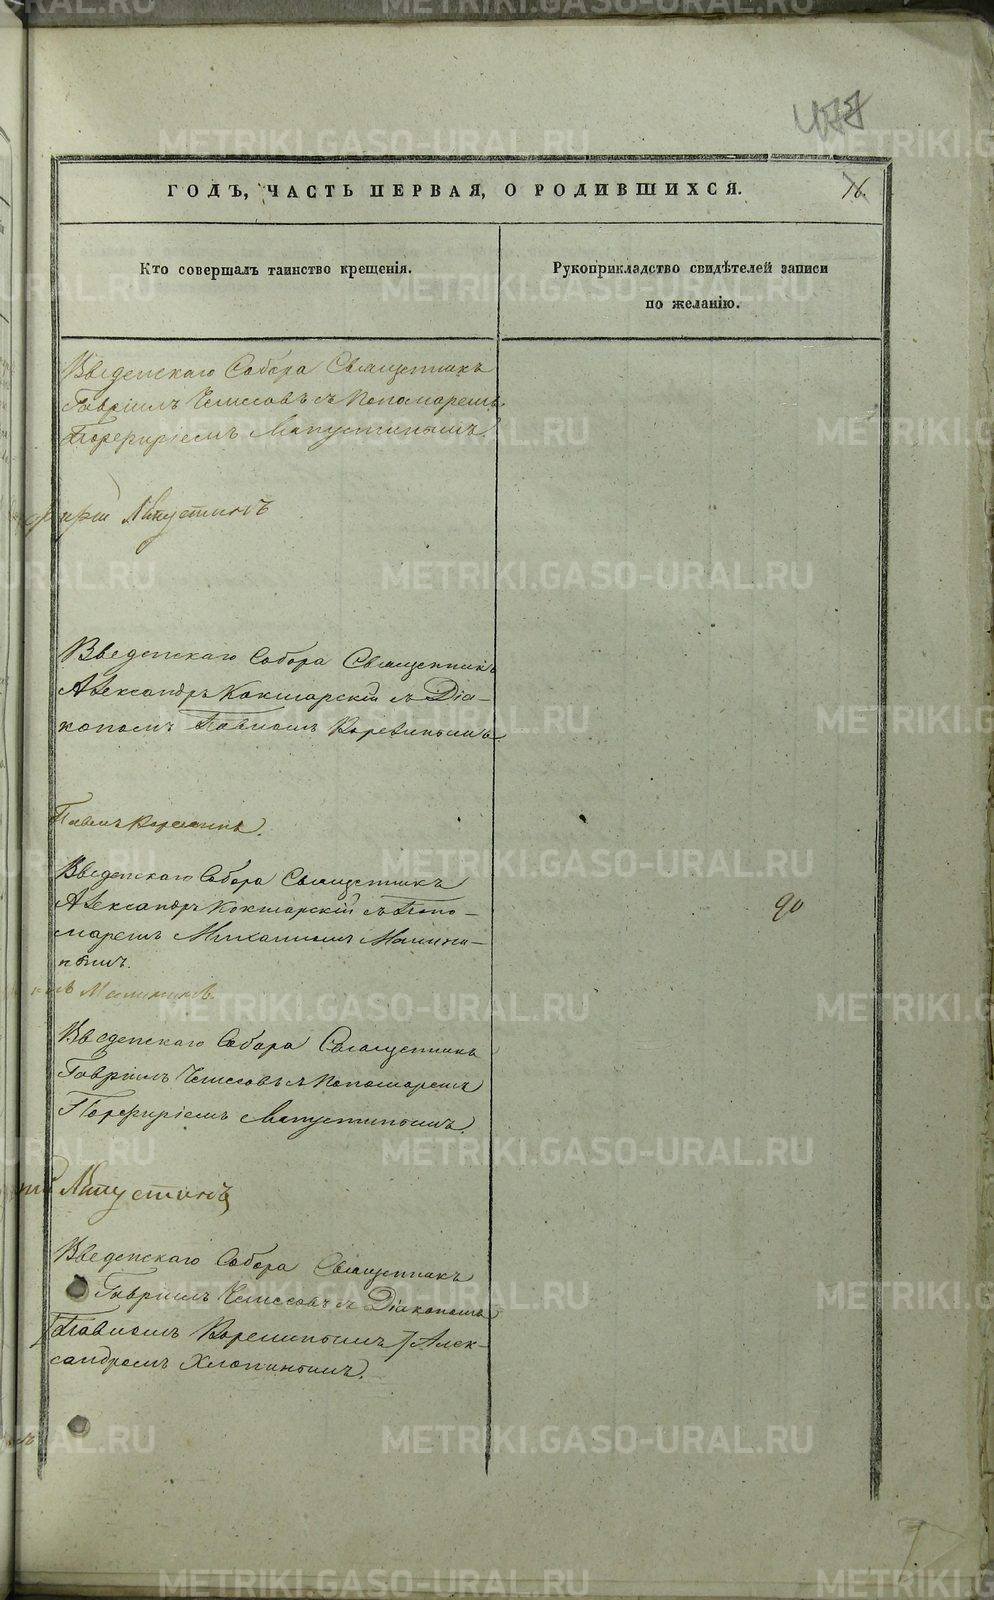 ГОДЪ, ЧАСТЬ ПЕРВАЯ, О РОДИВШИХСЯ.
16.
Кто совершалъ таинство крещенія.
Рукоприкладство свидѣтелей записи
по желанію.
Введенскаго Собора Священникъ
Гавріилъ Чемесовъ съ Пономаремъ
Порфиріемъ Лапустинымъ.
Лапустинъ
Введенскаго Собора Священникъ
Александръ Кокшарскій съ Діа-
кономъ Павломъ Корелинымъ
Павелъ Корелинъ.
Введенскаго Собора Священникъ
Александръ Кокшарскій съ Поно-
маремъ Михаиломъ Малини-
нымъ.
Малининъ.
90
Введенскаго Собора Священникъ
Гавріилъ Чемесовъ съ Пономаремъ
Порфиріемъ Лапустинымъ.
Лапустинъ
Введенскаго Собора Священникъ
Гавріилъ Чемесовъ съ Діакономъ
[Павломъ Корелинымъ] Алек-
сандромъ Хлопинымъ.
METRIKI.GASO-URAL.RU